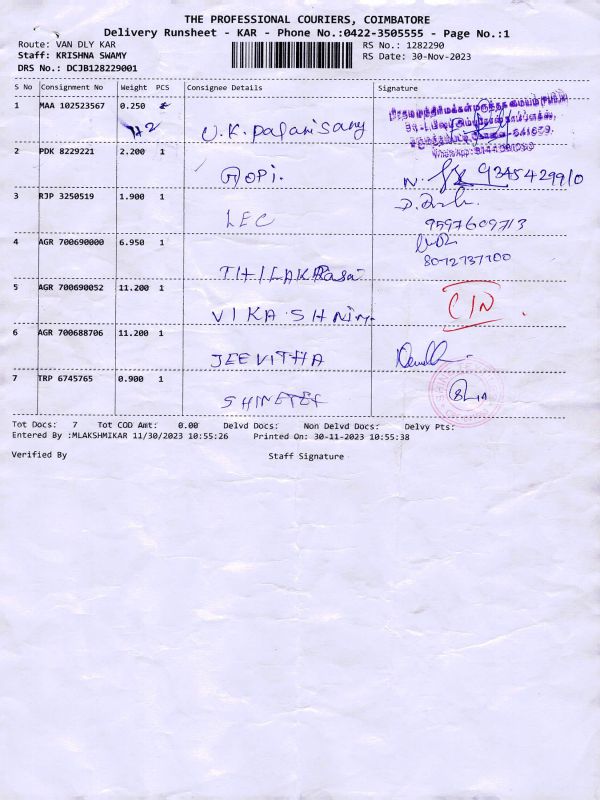 THE PROFESSIONAL COURIERS, COIMBATORE
Delivery Runsheet - KAR - Phone No.:0422-3505555 - Page No.:1
Route: VAN DLY KAR RS No.: 1282290
Staff: KRISHNA SWAMY RS Date: 30-Nov-2023
DRS No.: DCJB128229001
S No Consignment No Weight PCS Consignee Details Signature
1 MAA 102523567 0.250
U.K. palanisamy
2 PDK 8229221 2.200 1
GOPI. N. 9345429910
3 RJP 3250519 1.900 1
LEC 9597609713
4 AGR 700690000 6.950 1
8072737700
THILAKRasa
5 AGR 700690052 11.200 1
VIKASH CIN
6 AGR 700688706 11.200 1
JEEVITHA
7 TRP 6745765 0.900 1
Tot Docs: 7 Tot COD Amt: 0.00 Delvd Docs: Non Delvd Docs: Delvy Pts:
Entered By :MLAKSHMIKAR 11/30/2023 10:55:26 Printed On: 30-11-2023 10:55:38
Verified By Staff Signature